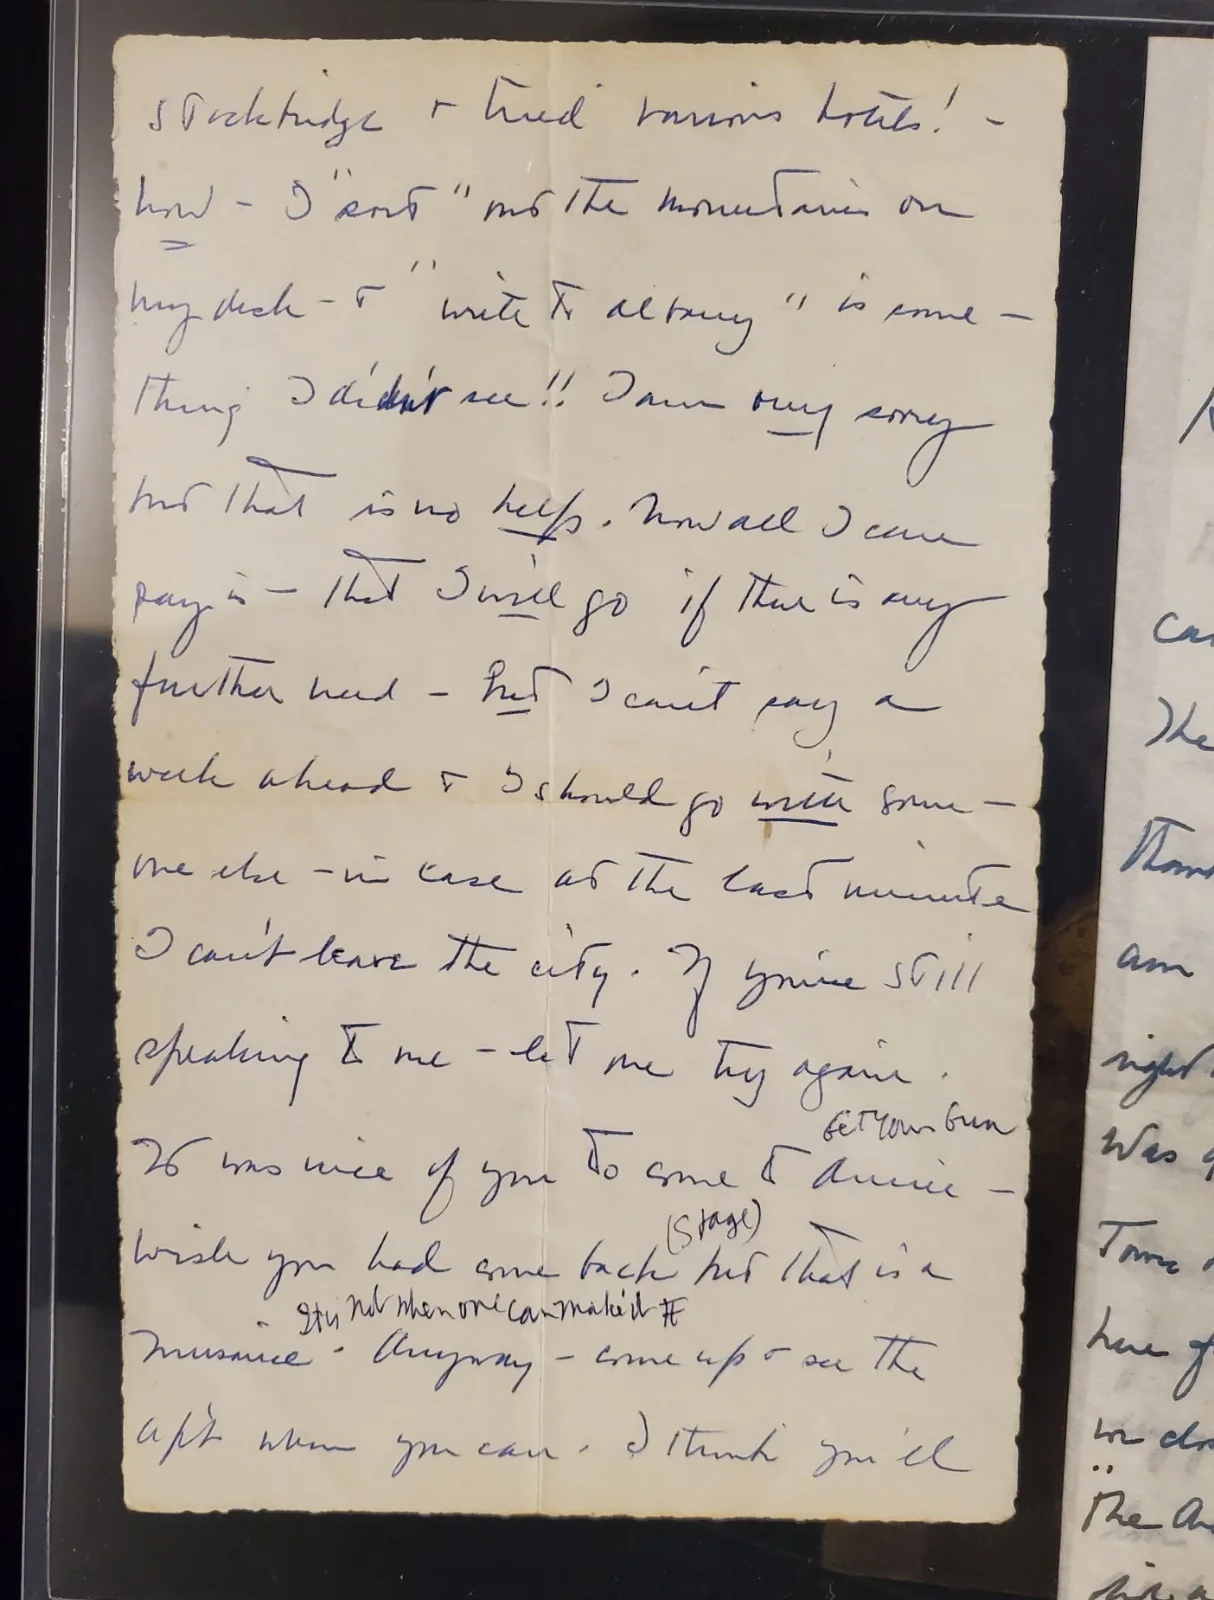 Stockbridge & tried various hotels! -
now - I "sort" out the mountains on
my desk - & "write to Albany" is some -
thing I didn't see!! I am very sorry
but that is no help. Now all I can
say is - that I will go if there is any
further need - but I can't say a
week ahead & I should go with some -
one else - in case at the last minute
I can't leave the city. If you're still
speaking to me - let me try again.
Get Your Gun
It was nice of you to come to Annie -
(stage)
wish you had come back but that is a
not when one can make it
nuisance. Anyway - come up & see the
apt when you can. I think you'll
The
am
right
Was
Town
here of
we
"The